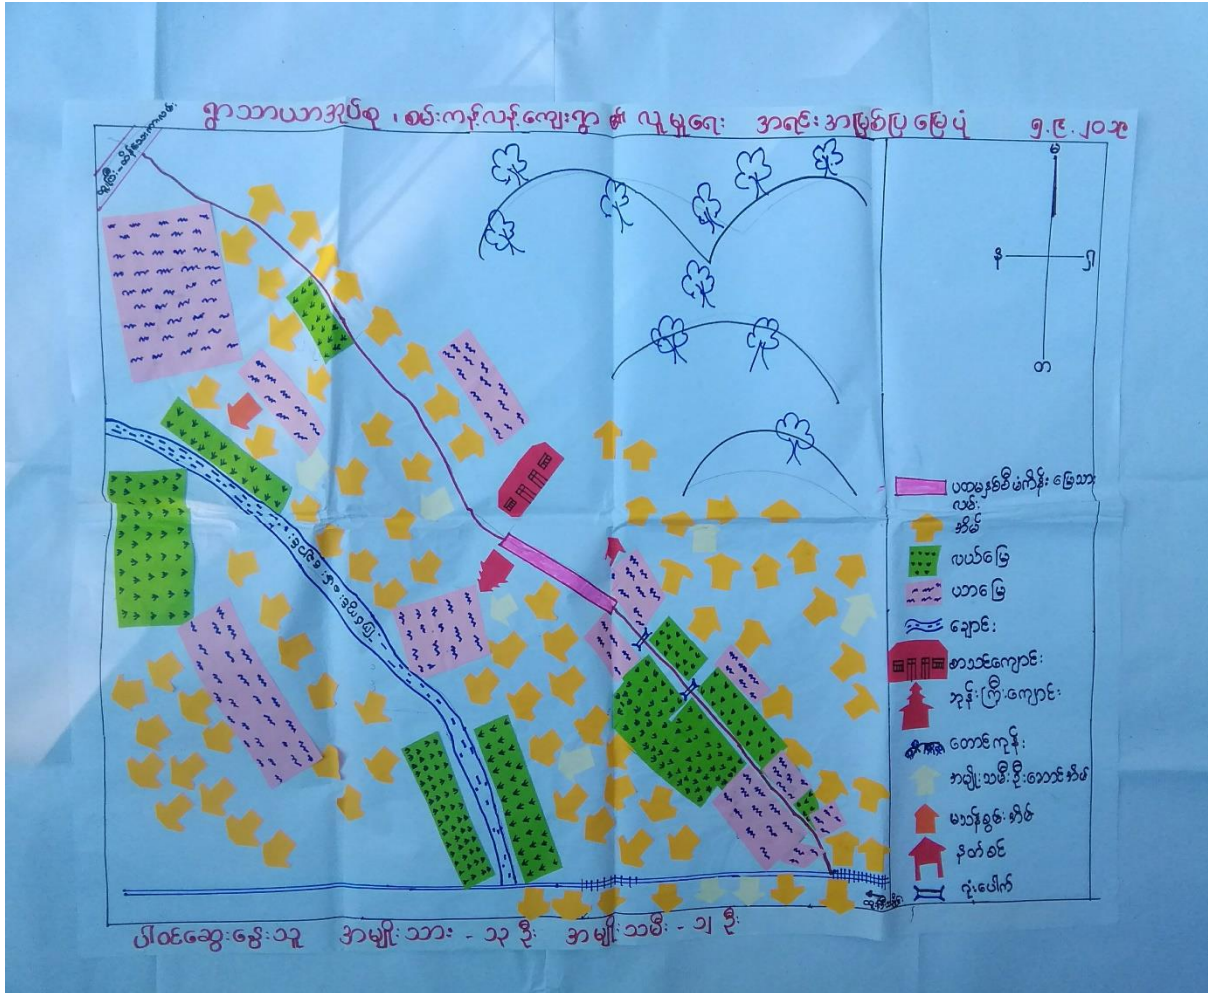 ရွာသာယာအုပ်စု ၊ စမ်းကန့်လန့်ကျေးရွာ ၏ လူမှုရေး အရင်းအမြစ်ပြ မြေပုံ ၅.၉.၂၀၁၉
မ
န
၅
တ
ပထမနှစ်စီမံကိန်း မြေသား
လမ်း
အိမ်
လယ်မြေ
ယာမြေ
ချောင်း
စာသင်ကျောင်း
ဘုန်းကြီးကျောင်း
တောင်ကုန်း
အမျိုးသမီးဦးဆောင်အိမ်
မသန်စွမ်းအိမ်
နတ်စင်
ဂုံးပေါက်
ပါဝင်ဆွေးနွေးသူ အမျိုးသား - ၁၃ ဦး အမျိုးသမီး - ၁၂ ဦး